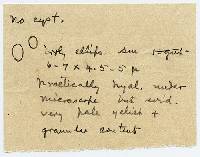 no cyst.
ellips sm 1-gutt-
6-7 x 4.5-5 µ
practically hyal. under
microscope but
very pale yelish +
granular content